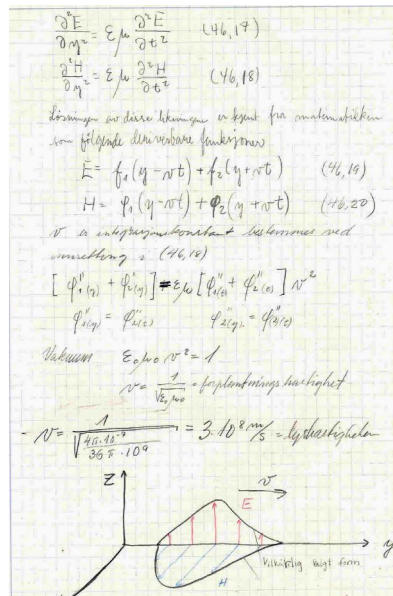 ∂²E/∂y² = εμ ∂²E/∂t² (46,17)
∂²H/∂y² = εμ ∂²H/∂t² (46,18)
Løsningen av disse likningene er kjent fra matematikken
som følgende deriverbare funksjoner
E = f₁(y − vt) + f₂(y + vt) (46,19)
H = φ₁(y − vt) + φ₂(y + vt) (46,20)
v er integrasjonskonstant bestemmes ved
innsetting i (46,18)
[φ₁''(y) + φ₂''(y)] = εμ [φ₁''(t) + φ₂''(t)] v²
φ₁''(y) = φ₁''(t) φ₂''(y) = φ₂''(t)
Vakuum ε₀μ₀v² = 1
v = 1/√(ε₀μ₀) = forplantningshastighet
v = 1/√(4π·10⁻⁷/(36π·10⁹)) = 3·10⁸ m/s = lyshastigheten
Z
v
E
y
H
Vilkårlig valgt form